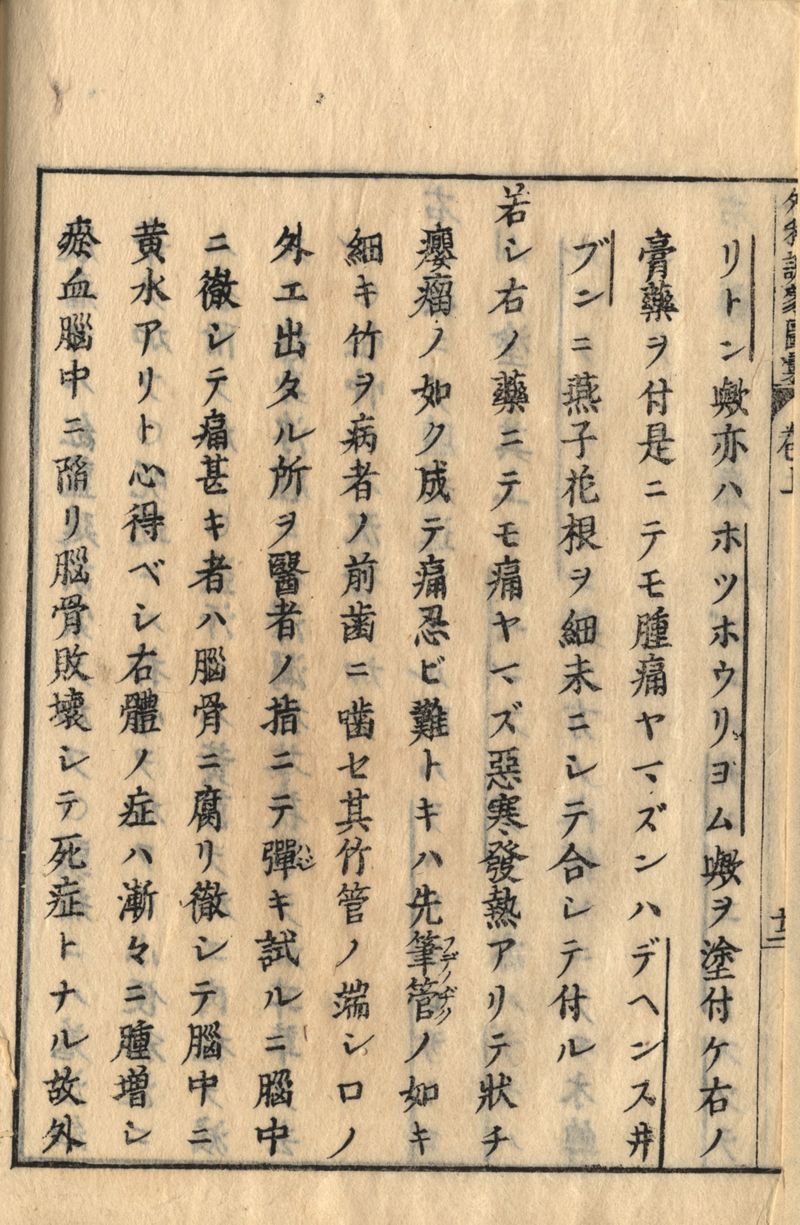 外科訓蒙圖彙 卷上
十二
リトン歟亦ハホツホウリヨム歟ヲ塗付ケ右ノ
膏藥ヲ付是ニテモ腫痛ヤマズンハデヘンス
ブンニ燕子花根ヲ細末ニシテ合シテ付ル
若シ右ノ藥ニテモ痛ヤマズ惡寒發熱アリテ狀チ
癭瘤ノ如ク成テ痛忍ビ難トキハ先筆管ノ如キ
細キ竹ヲ病者ノ前歯ニ噛セ其竹管ノ端シロノ
外エ出タル所ヲ醫者ノ指ニテ彈キ試ルニ腦中
ニ徹シテ痛甚キ者ハ腦骨ニ腐リ徹シテ腦中ニ
黄水アリト心得ベシ右體ノ症ハ漸々ニ腫増シ
瘀血腦中ニ陷リ腦骨敗壞シテ死症トナル故外